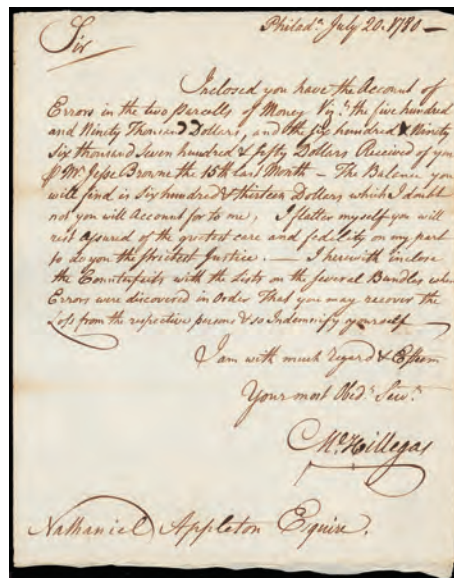 Philadª July 20. 1780 —
Sir
Inclosed you have the Account of
Errors in the two Parcells of Money Vizt the five hundred
and Ninity Thousand Dollars, and the six hundred & Ninity
Six thousand Seven hundred & fifty Dollars Received of you
℘ Mr Jesse Browne the 15th last Month — The Balance you
will find is Six hundred & thirteen Dollars which I doubt
not you will Account for to me, I flatter myself you will
rest assured of the greatest care and fedility on my part
to do you the Strictest Justice. — I herewith inclose
the Counterfeits with the Lists on the several Bundles where
Errors were discovered in Order that you may recover the
Loss from the respective persons & so Indemnify yourself —
I am with much regard & Esteem
Your most Obedt Servt
M. Hillegas
Nathaniel Appleton Esquire.